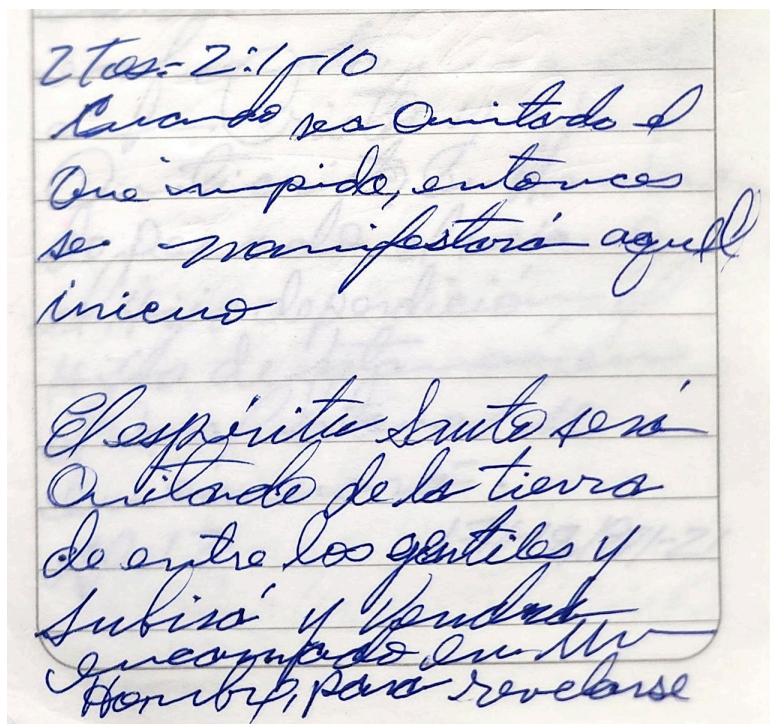 2 Tes= 2:1-10
Cuando sea Quitado el
Que impide, entonces
se manifestará aquell
inicuo
El espíritu Santo será
Quitado de la tierra
de entre los gentiles y
Subirá y Vendrá
en un
Hombre, para revelarse